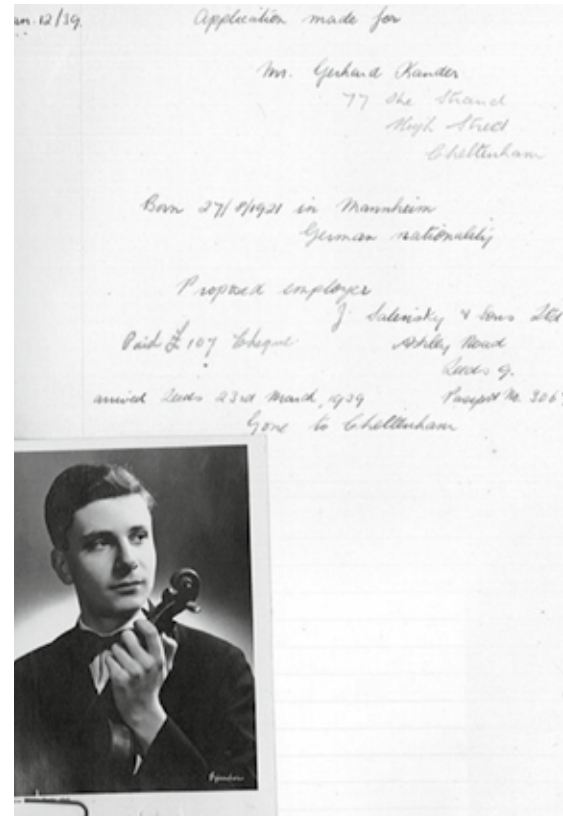 an. 12/39. Application made for
Mr. Gerhard Kander
77 The Strand
High Street
Cheltenham
Born 27/8/1921 in Mannheim
German nationality
Proposed employer
J. Salinsky & Sons Ltd
Paid £ 107 Cheque Ashley Road
Leeds 9.
arrived Leeds 23rd March, 1939 Passport No. 306
Gone to Cheltenham